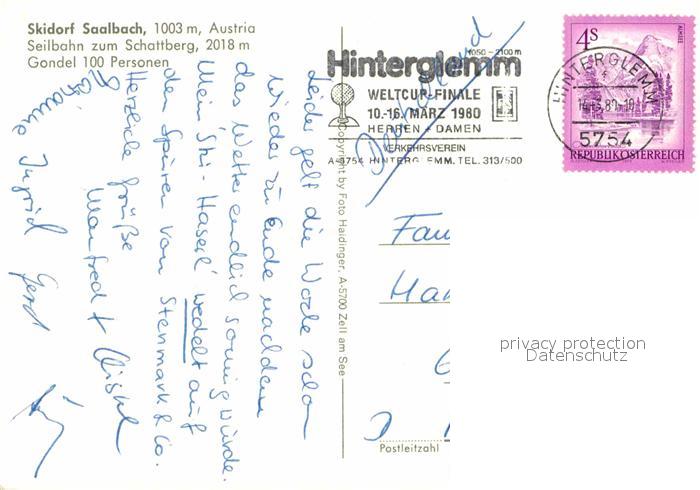 Skidorf Saalbach, 1003 m, Austria
Seilbahn zum Schattberg, 2018 m
Gondel 100 Personen
Leider geht die Woche schon
wieder zu Ende nachdem
das Wetter endlich sonnig wurde.
Mein "Ski-Haserl" wedelt auf
den Spuren von Stenmark & Co.
Herzliche Grüße
Manfred +
Ingrid Gerd
Copyright by Foto Haidinger, A-5700 Zell am See
1050 - 2100 m
Hinterglemm
WELTCUP-FINALE
10.-16. MÄRZ 1980
HERREN + DAMEN
VERKEHRSVEREIN
A-5754 HINTERGLEMM. TEL. 313/500
Deutschland
4S
ALMSEE
REPUBLIK ÖSTERREICH
HINTERGLEMM
5754
Fam
Han
D
Postleitzahl
privacy protection
Datenschutz